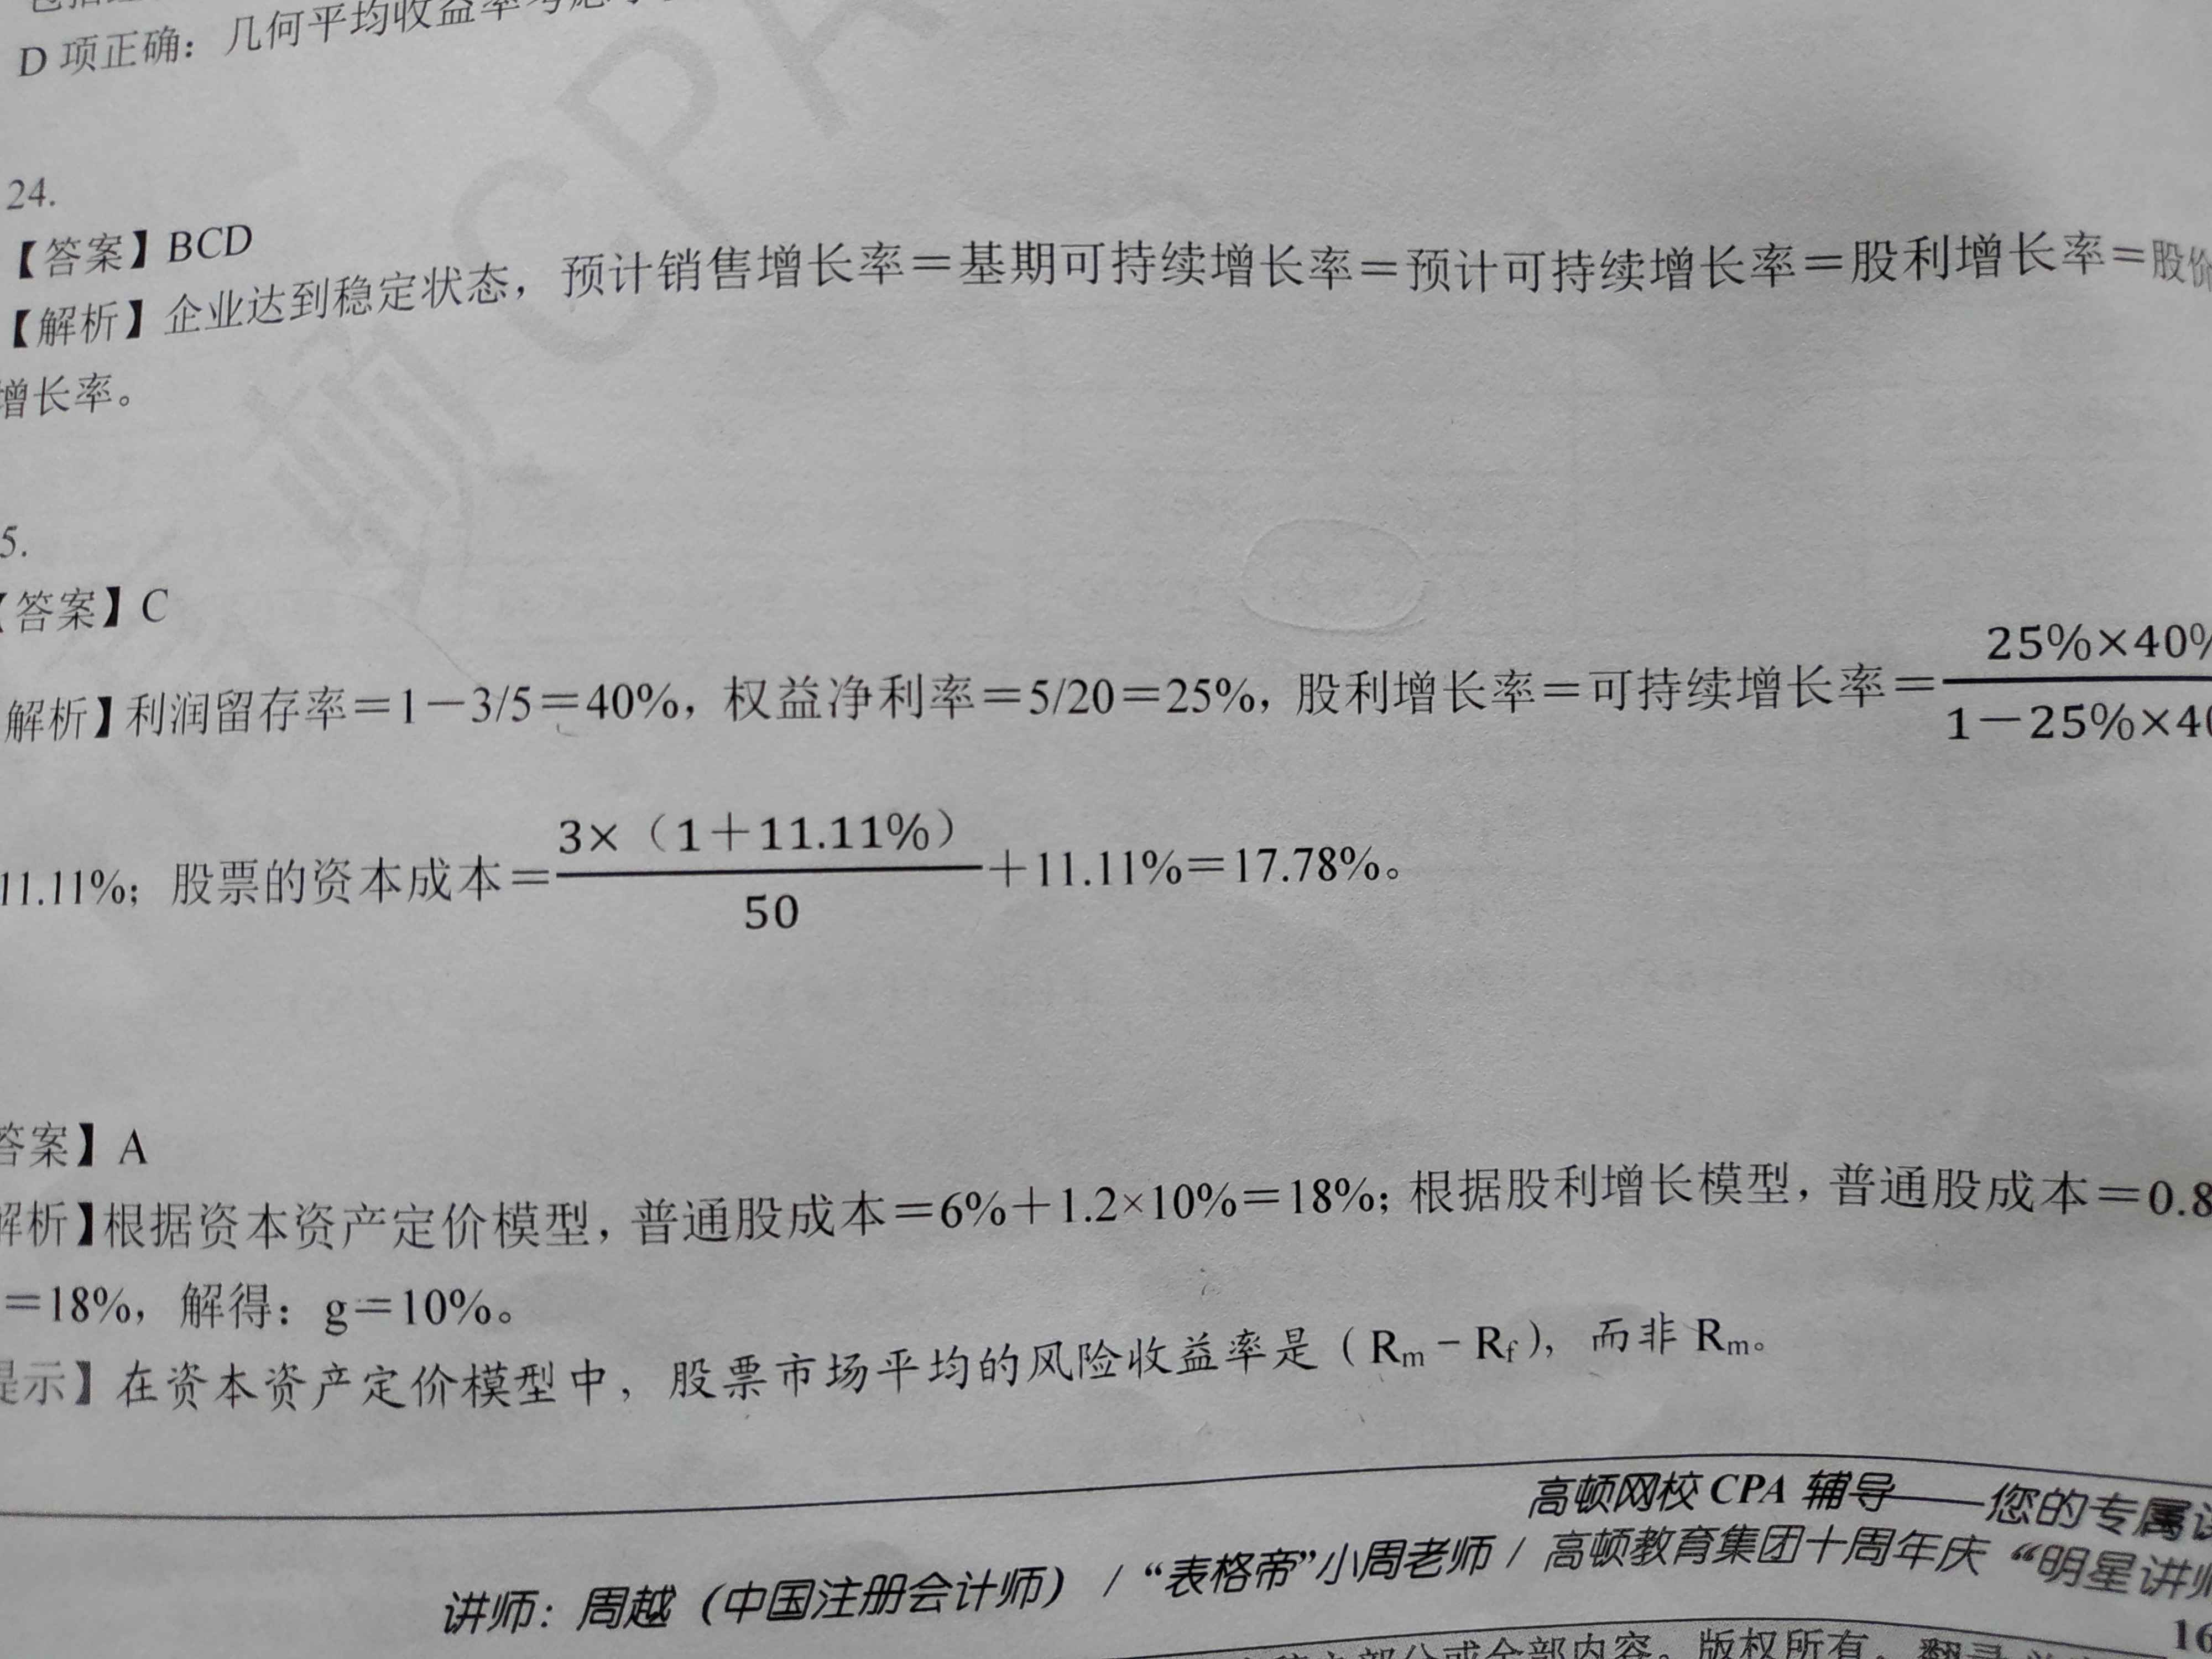 D 项正确：几何平均收益率考虑
24.
【答案】BCD
【解析】企业达到稳定状态，预计销售增长率＝基期可持续增长率＝预计可持续增长率＝股利增长率＝股价
增长率。
5.
【答案】C
解析】利润留存率＝1－3/5＝40%，权益净利率＝5/20＝25%，股利增长率＝可持续增长率＝25%×40%/1－25%×40
11.11%；股票的资本成本＝3×（1＋11.11%）/50＋11.11%＝17.78%。
答案】A
解析】根据资本资产定价模型，普通股成本＝6%＋1.2×10%＝18%；根据股利增长模型，普通股成本＝0.8
＝18%，解得：g＝10%。
提示】在资本资产定价模型中，股票市场平均的风险收益率是（Rm－Rf），而非 Rm。
高顿网校 CPA 辅导——您的专属
讲师：周越（中国注册会计师） / “表格帝”小周老师 / 高顿教育集团十周年庆“明星讲师
16
部分或全部内容。版权所有，翻录
顿 CPA